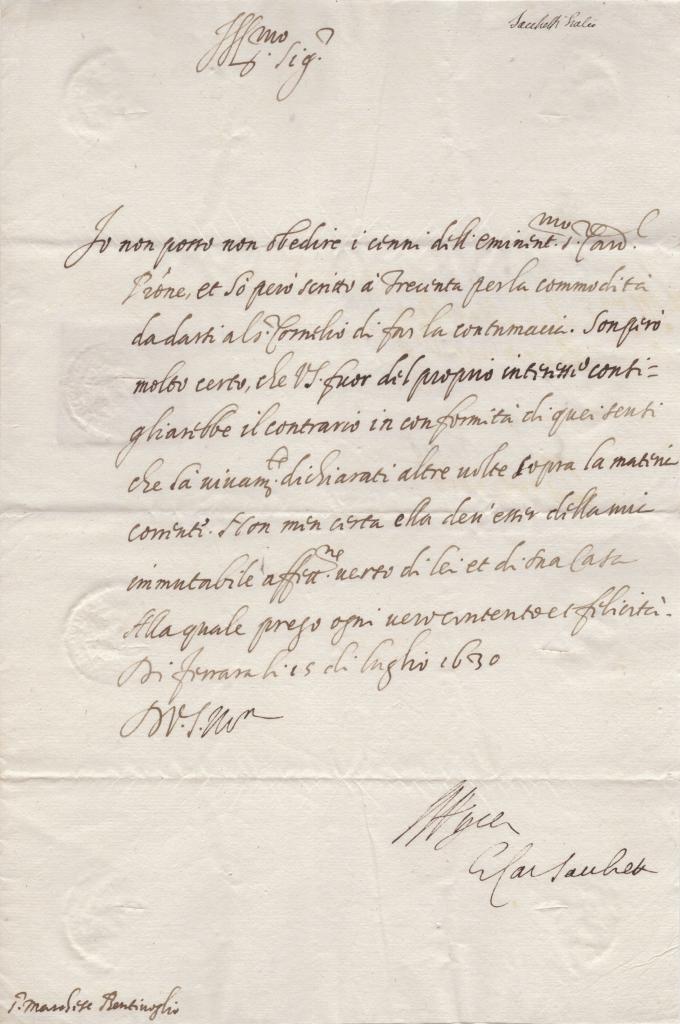 Sacchetti Giulio
Ill.mo Sig.r
Io non posso non obedire i cenni dell'eminent.mo S.r Card.l
Pióne, et hò però scritto à Trecenta per la commodità
da darsi al s.r Cornelio di far la contumacia. Son però
molto certo, che VS. fuor del proprio interesse consi=
gliarebbe il contrario in conformità di quei sensi
che hà vivam.te dichiarati altre volte sopra la materia
corrente. Non men certa ella dev'esser della mia
immutabile affett.ne verso di lei et di sua Casa
Alla quale prego ogni vero contento et felicità.
Di Ferrara li 15 di luglio 1630
Di V.S. Ill.ma
Car Sacchetti
S. Marchese Bentivoglio